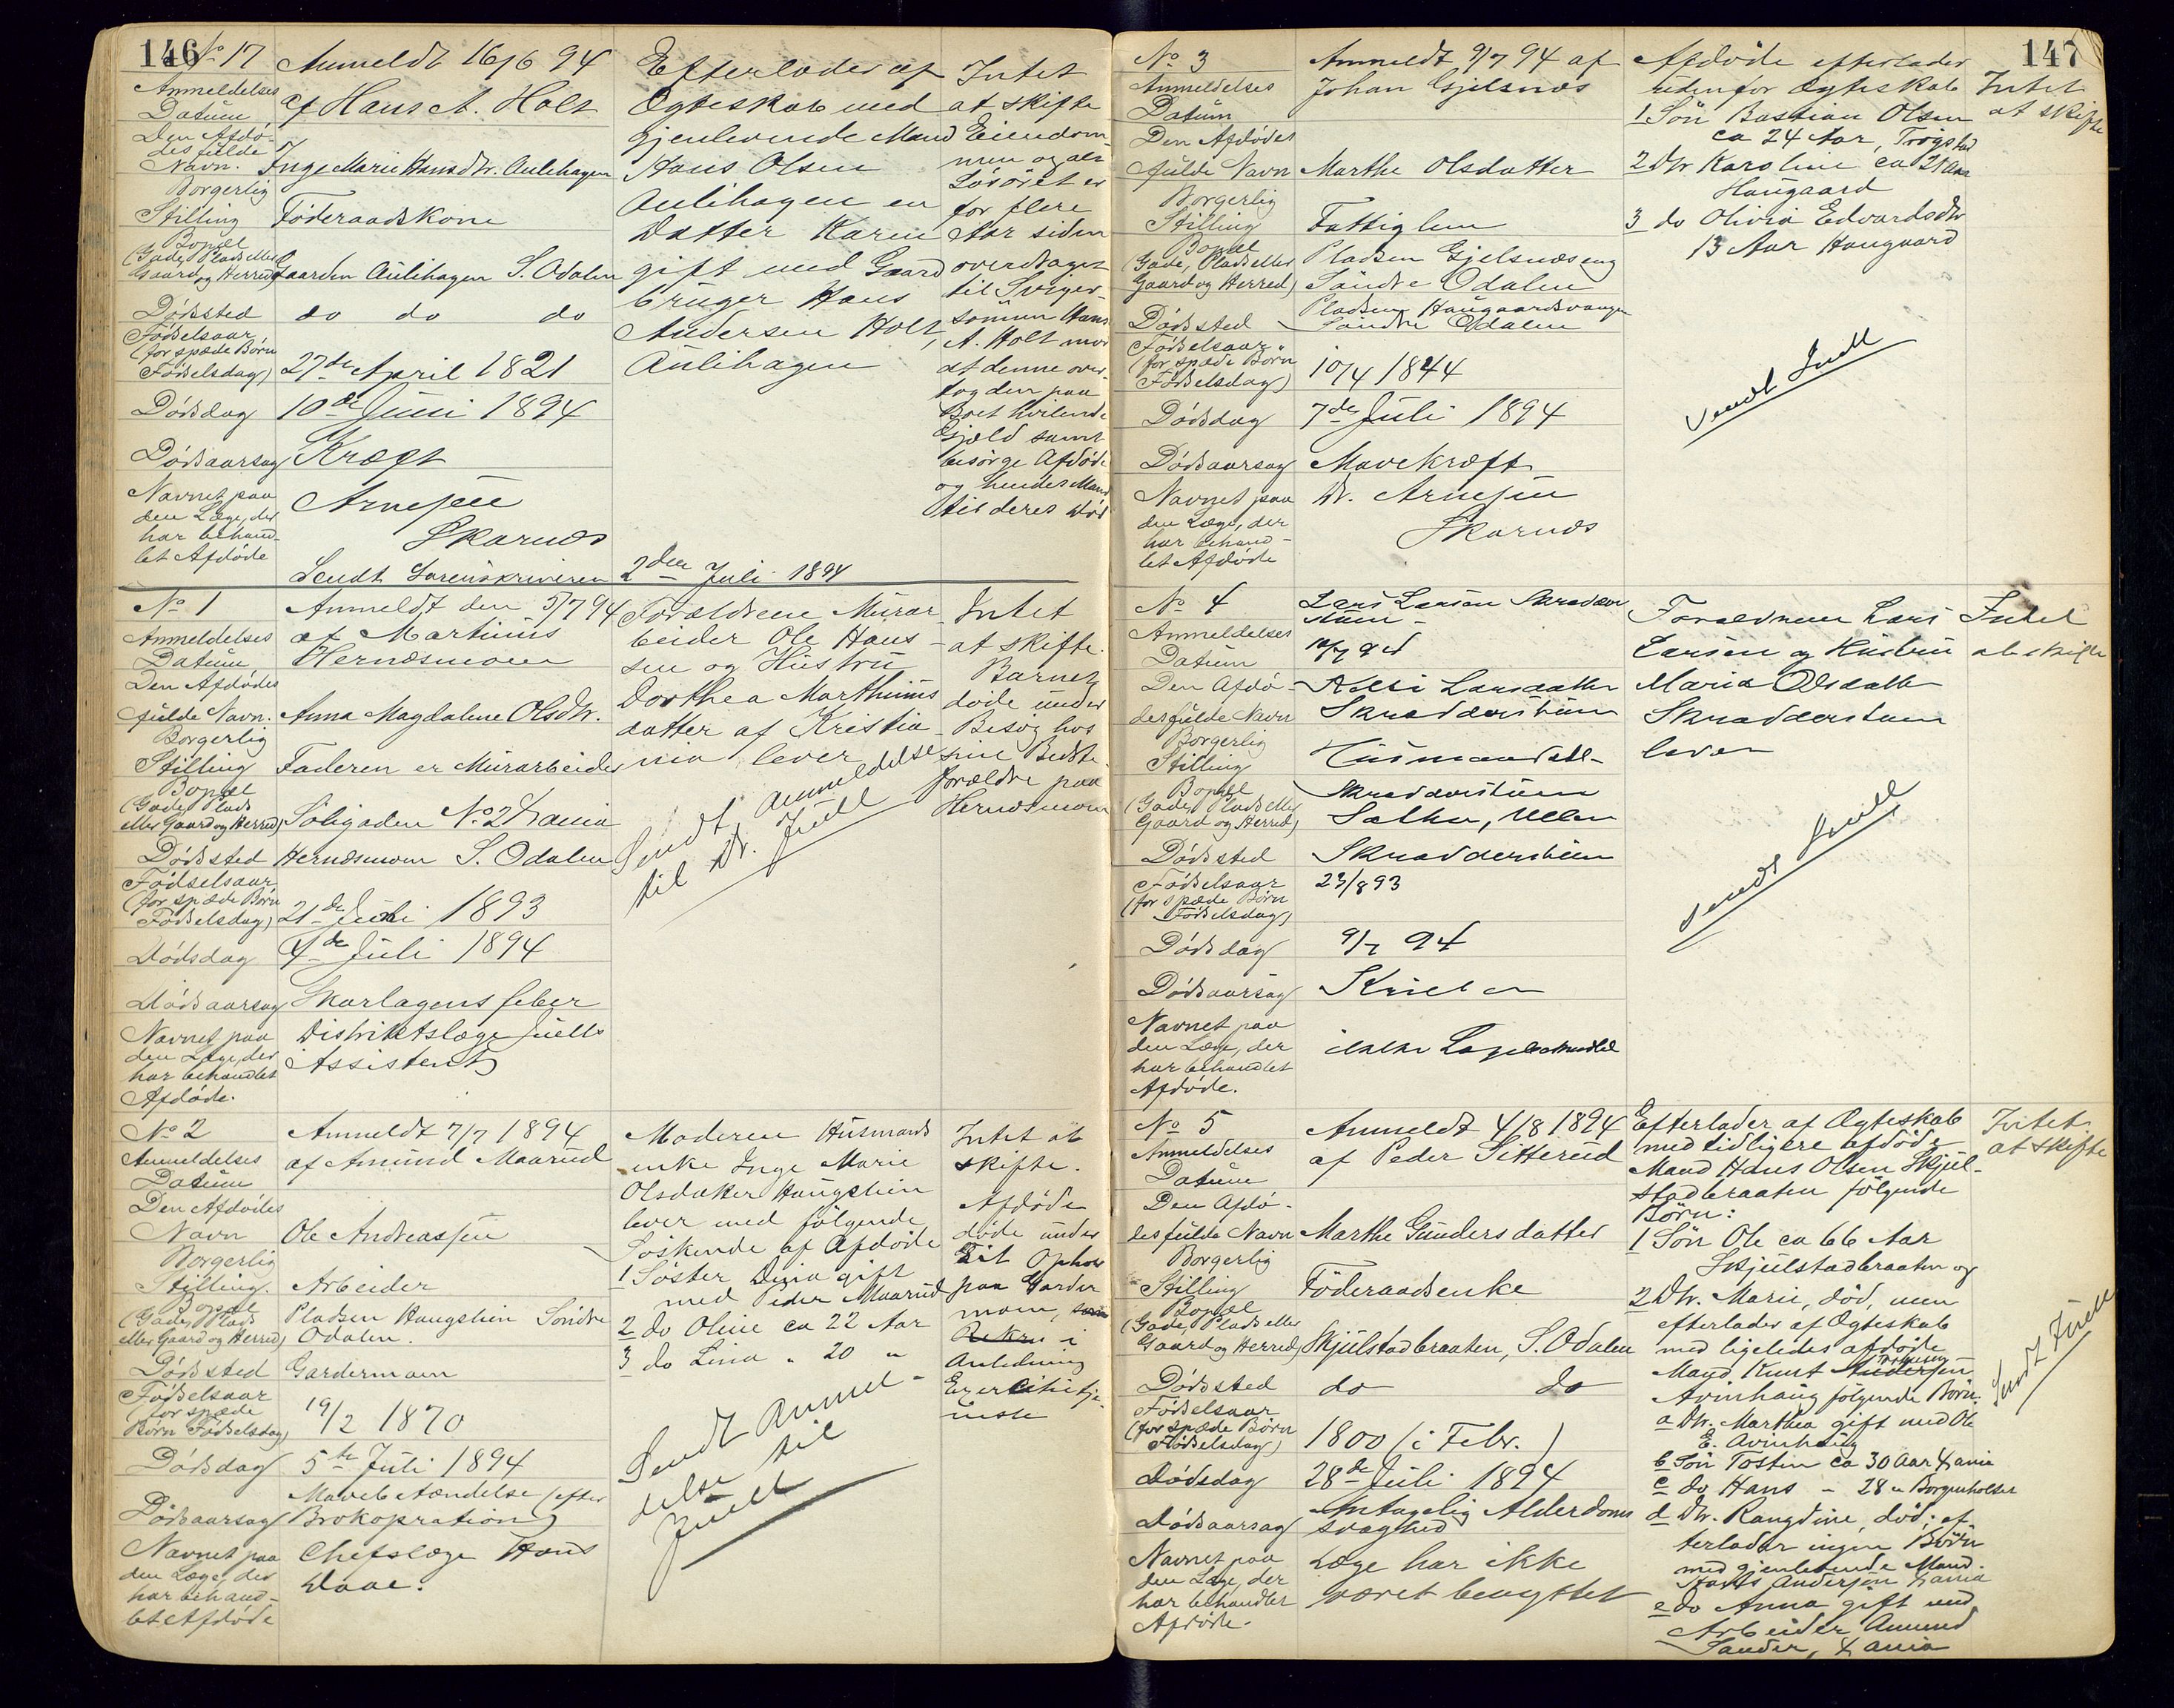 146
No 17
Anmeldelses
Datum
Anmeldt 16/6 94
af Hans A. Holt
Den Afdø-
des fulde
Navn.
Inge Marie Hansdtr. Aulihagen
Borgerlig
Stilling
Føderaadskone
Bopæl
(Gade, Plads eller
Gaard og Herred)
Gaarden Aulihagen S. Odalen
Dødssted
do do do
Fødselsaar
(for spæde Børn
Fødselsdag)
27de April 1821
Dødsdag
10de Juni 1894
Dødsaarsag
Kræft
Navnet paa
den Læge, der
har behand-
let Afdøde
Arnesen
Skarnæs
Efterlader af
Ægteskab med
gjenlevende Mand
Hans Olsen
Aulihagen en
Datter Karen
gift med Gaard
bruger Hans
Andersen Holt,
Aulihagen
Intet
at skifte
Eiendom-
men og alt
Løsøret er
for flere
Aar siden
overdraget
til Sviger-
sønnen Hans
A. Holt mod
at denne over-
tog den paa
Boet hvilende
Gjæld samt
besørge Afdøde
og hendes Mand
til deres Død
Sendt Sorenskriveren 2den Juli 1894
No 1
Anmeldelses
Datum
Anmeldt den 5/7 94
af Martinus
Hernæsmoen
Den Afdødes
fulde Navn.
Anna Magdalene Olsdtr.
Borgerlig
Stilling
Faderen er Murarbeider
Bopæl
(Gade, Plads
eller Gaard og Herred)
Soligaden No 2 Xania
Dødssted
Hernæsmoen S. Odalen
Fødselsaar
(for spæde Børn
Fødselsdag)
21de Juli 1893
Dødsdag
4de Juli 1894
Dødsaarsag
Skarlagensfeber
Navnet paa
den Læge, der
har behandlet
Afdøde.
Distriktslæge Juells
Assistent
Forældrene Murar-
beider Ole Han-
sen og Hustru
Dorthea Marthinus
datter af Kristia-
nia lever
Sendt Anmeldelse
til Dr. Juell
Intet
at skifte.
Barnet
døde under
Besøg hos
sine Bedste-
forældre paa
Hernæsmoen
No 2
Anmeldelses
Datum
Anmeldt 7/7 1894
af Amund Maarud
Den Afdødes
Navn
Ole Andreassen
Borgerlig
Stilling.
Arbeider
Bopæl
(Gade, Plads
eller Gaard og Herred)
Pladsen Haugstien Søndre
Odalen.
Dødssted
Gardermoen
Fødselsaar
(for spæde
Børn Fødselsdag)
19/2 1870
Dødsdag
5te Juli 1894
Dødsaarsag
Mavebetændelse (efter
Brokopration)
Navnet paa
den Læge, der
har behand-
let Afdøde
Chefslæge Hans
Daae.
Moderen Husmands
enke Inge Marie
Olsdatter Haugstien
lever med følgende
Søskende af Afdøde
1 Søster Dina gift
med Peder Maarud
2 do Oline ca 22 Aar
3 do Lina " 20 "
Sendt Anmel-
delse til
Juell
Intet at
skifte.
Afdøde
døde under
sit Ophold
paa Garder
moen, som
Rekru i
Anledning
Exercitietje-
neste
147
No 3
Anmeldelses
Datum
Anmeldt 9/7 94 af
Johan Gjelsnæs
Den Afdødes
fulde Navn
Marthe Olsdatter
Borgerlig
Stilling
Fattiglem
Bopæl
(Gade, Plads eller
Gaard og Herred)
Pladsen Gjelsnæseng
Søndre Odalen
Dødssted
Pladsen Haugaardsvangen
Søndre Odalen
Fødselsaar
(for spæde Børn
Fødselsdag)
10/4 1844
Dødsdag
7de Juli 1894
Dødsaarsag
Mavekræft
Navnet paa
den Læge, der
har behand-
let Afdøde
Dr. Arnesen
Skarnæs
Afdøde efterlader
udenfor Ægteskab
1 Søn Bastian Olsen
ca 24 Aar, Trøgstad
2 Dtr Karoline ca 21 Aar
Haugaard
3 do Olivia Edvardsdtr
13 Aar Haugaard
Sendt Juell
Intet
at skifte
No 4
Anmeldelses
Datum
Lars Larsen Skrædder
stuen
10/7 94
Den Afdø-
des fulde Navn
Larsdatter
Skrædderstuen
Borgerlig
Stilling
Bopæl
(Gade, Plads eller
Gaard og Herred)
Skrædderstuen
Dødssted
Skrædderstuen
Fødselsaar
(for spæde Børn
Fødselsdag)
23/8 93
Dødsdag
9/7 94
Dødsaarsag
Navnet paa
den Læge, der
har behandlet
Afdøde.
ikke Lægebehandlet
Forældrene Lars
Larsen og Hustru
Maria Olsdatter
Skrædderstuen
lever
Sendt Juell
Intet
at skifte
No 5
Anmeldelses
Datum
Anmeldt 4/8 1894
af Peder Sitterud
Den Afdø-
des fulde Navn
Marthe Gundersdatter
Borgerlig
Stilling
Føderaadsenke
Bopæl
(Gade, Plads eller
Gaard og Herred)
Skjulstadbraaten, S. Odalen
Dødssted
do do
Fødselsaar
(for spæde Børn
Fødselsdag)
1800 (i Febr.)
Dødsdag
28de Juli 1894
Dødsaarsag
Antagelig Alderdoms
svaghed
Navnet paa
den Læge, der
har behandlet
Afdøde.
Læge har ikke
været benyttet
Efterlader af Ægteskab
med tidligere afdøde
Mand Hans Olsen Skjul-
stadbraaten følgende
Børn:
1 Søn Ole ca 66 Aar
Skjulstadbraaten og
2 Dtr. Marie, død, men
efterlader af Ægteskab
med ligeledes afdøde
Mand Knut Andersen
Arinhaug følgende Børn.
a Dtr. Marthea gift med Ole
E. Arinhaug
b Søn Tosten ca 30 Aar Xania
c do Hans - 28 " Borgenholset
d Dtr. Rangdine, død; ef-
terlader ingen Børn
med gjenlevende Mand.
Andersen Xania
e do Anna gift med
Arbeider Amund
Sander, Xania
Intet
at skifte
Sendt Juell